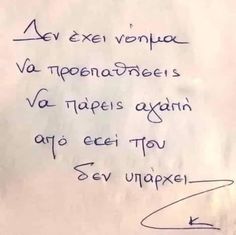 Δεν έχει νόημα
να προσπαθήσεις
να πάρεις αγάπη
από εκεί που
δεν υπάρχει
κ